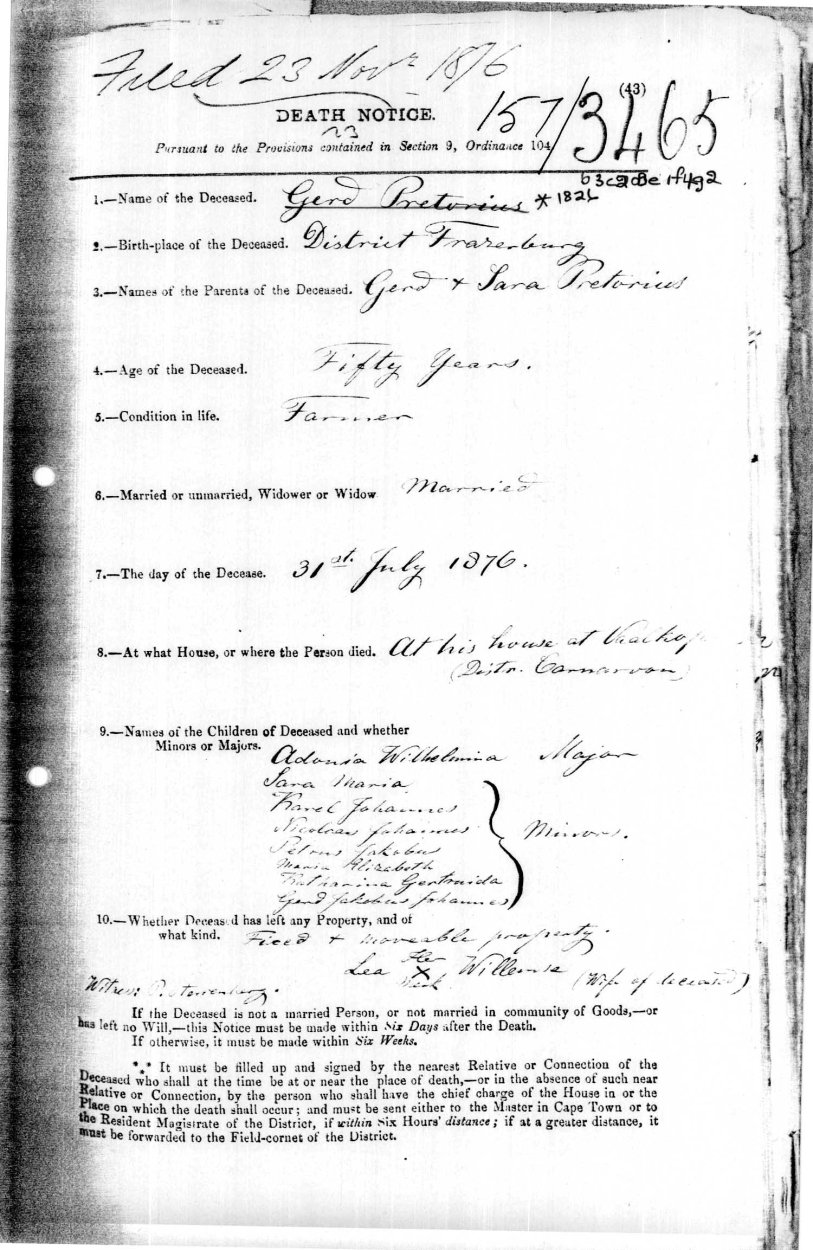 Filed 23 Novr 1876
(43)
DEATH NOTICE.
157/3465
23
Pursuant to the Provisions contained in Section 9, Ordinance 104
b3c2d8e1f4g2
1.—Name of the Deceased. Gerd Pretorius * 1826
2.—Birth-place of the Deceased. District Frazerburg
3.—Names of the Parents of the Deceased. Gerd + Sara Pretorius
4.—Age of the Deceased. Fifty Years.
5.—Condition in life. Farmer
6.—Married or unmarried, Widower or Widow Married
7.—The day of the Decease. 31st. July 1876.
8.—At what House, or where the Person died. At his house at
(Distr. Carnarvon)
9.—Names of the Children of Deceased and whether
Minors or Majors.
Adonia Wilhelmina Major
Sara Maria
Karel Johannes
Nicolaas Johannes Minors.
Petrus Jakobus
Maria Elizabeth
Katharina Gertruida
Gerd Jakobus Johannes
10.—Whether Deceased has left any Property, and of
what kind. Fixed + moveable property.
Her
Lea X Willemse (Wife of deceased)
Mark
Witness P.
If the Deceased is not a married Person, or not married in community of Goods,—or
has left no Will,—this Notice must be made within Six Days after the Death.
If otherwise, it must be made within Six Weeks.
*⁎* It must be filled up and signed by the nearest Relative or Connection of the
Deceased who shall at the time be at or near the place of death,—or in the absence of such near
Relative or Connection, by the person who shall have the chief charge of the House in or the
Place on which the death shall occur; and must be sent either to the Master in Cape Town or to
the Resident Magistrate of the District, if within Six Hours' distance; if at a greater distance, it
must be forwarded to the Field-cornet of the District.